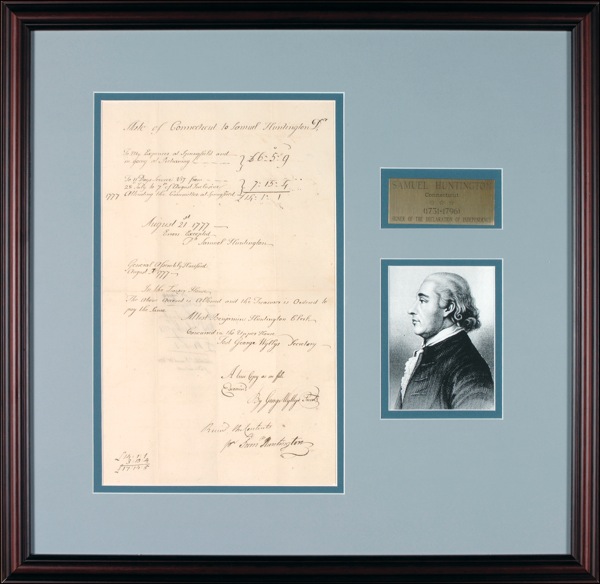 State of Connecticut to Samuel Huntington Dr
To my Expences at Springfield and
in going & Returning
£6: 5: 9
28 July to 7th of August Inclusive
1777 Attending the Committee at Springfield
7: 15: 4
£14: 1: 1
August 21st 1777
Errors Excepted
Pr Samuel Huntington
General Assembly Hartford
August 1777
In the Lower House
The above Account is Allowed and the Treasurer is Ordered to
pay the Same
Attest Benjamin Huntington Clerk
Concurred in the Upper House
Test George Wyllys Secretary
A true Copy as on file
Examined
By George Wyllys Secret
Received the Contents
pr Saml Huntington
SAMUEL HUNTINGTON
Connecticut
(1731-1796)
SIGNER OF THE DECLARATION OF INDEPENDENCE